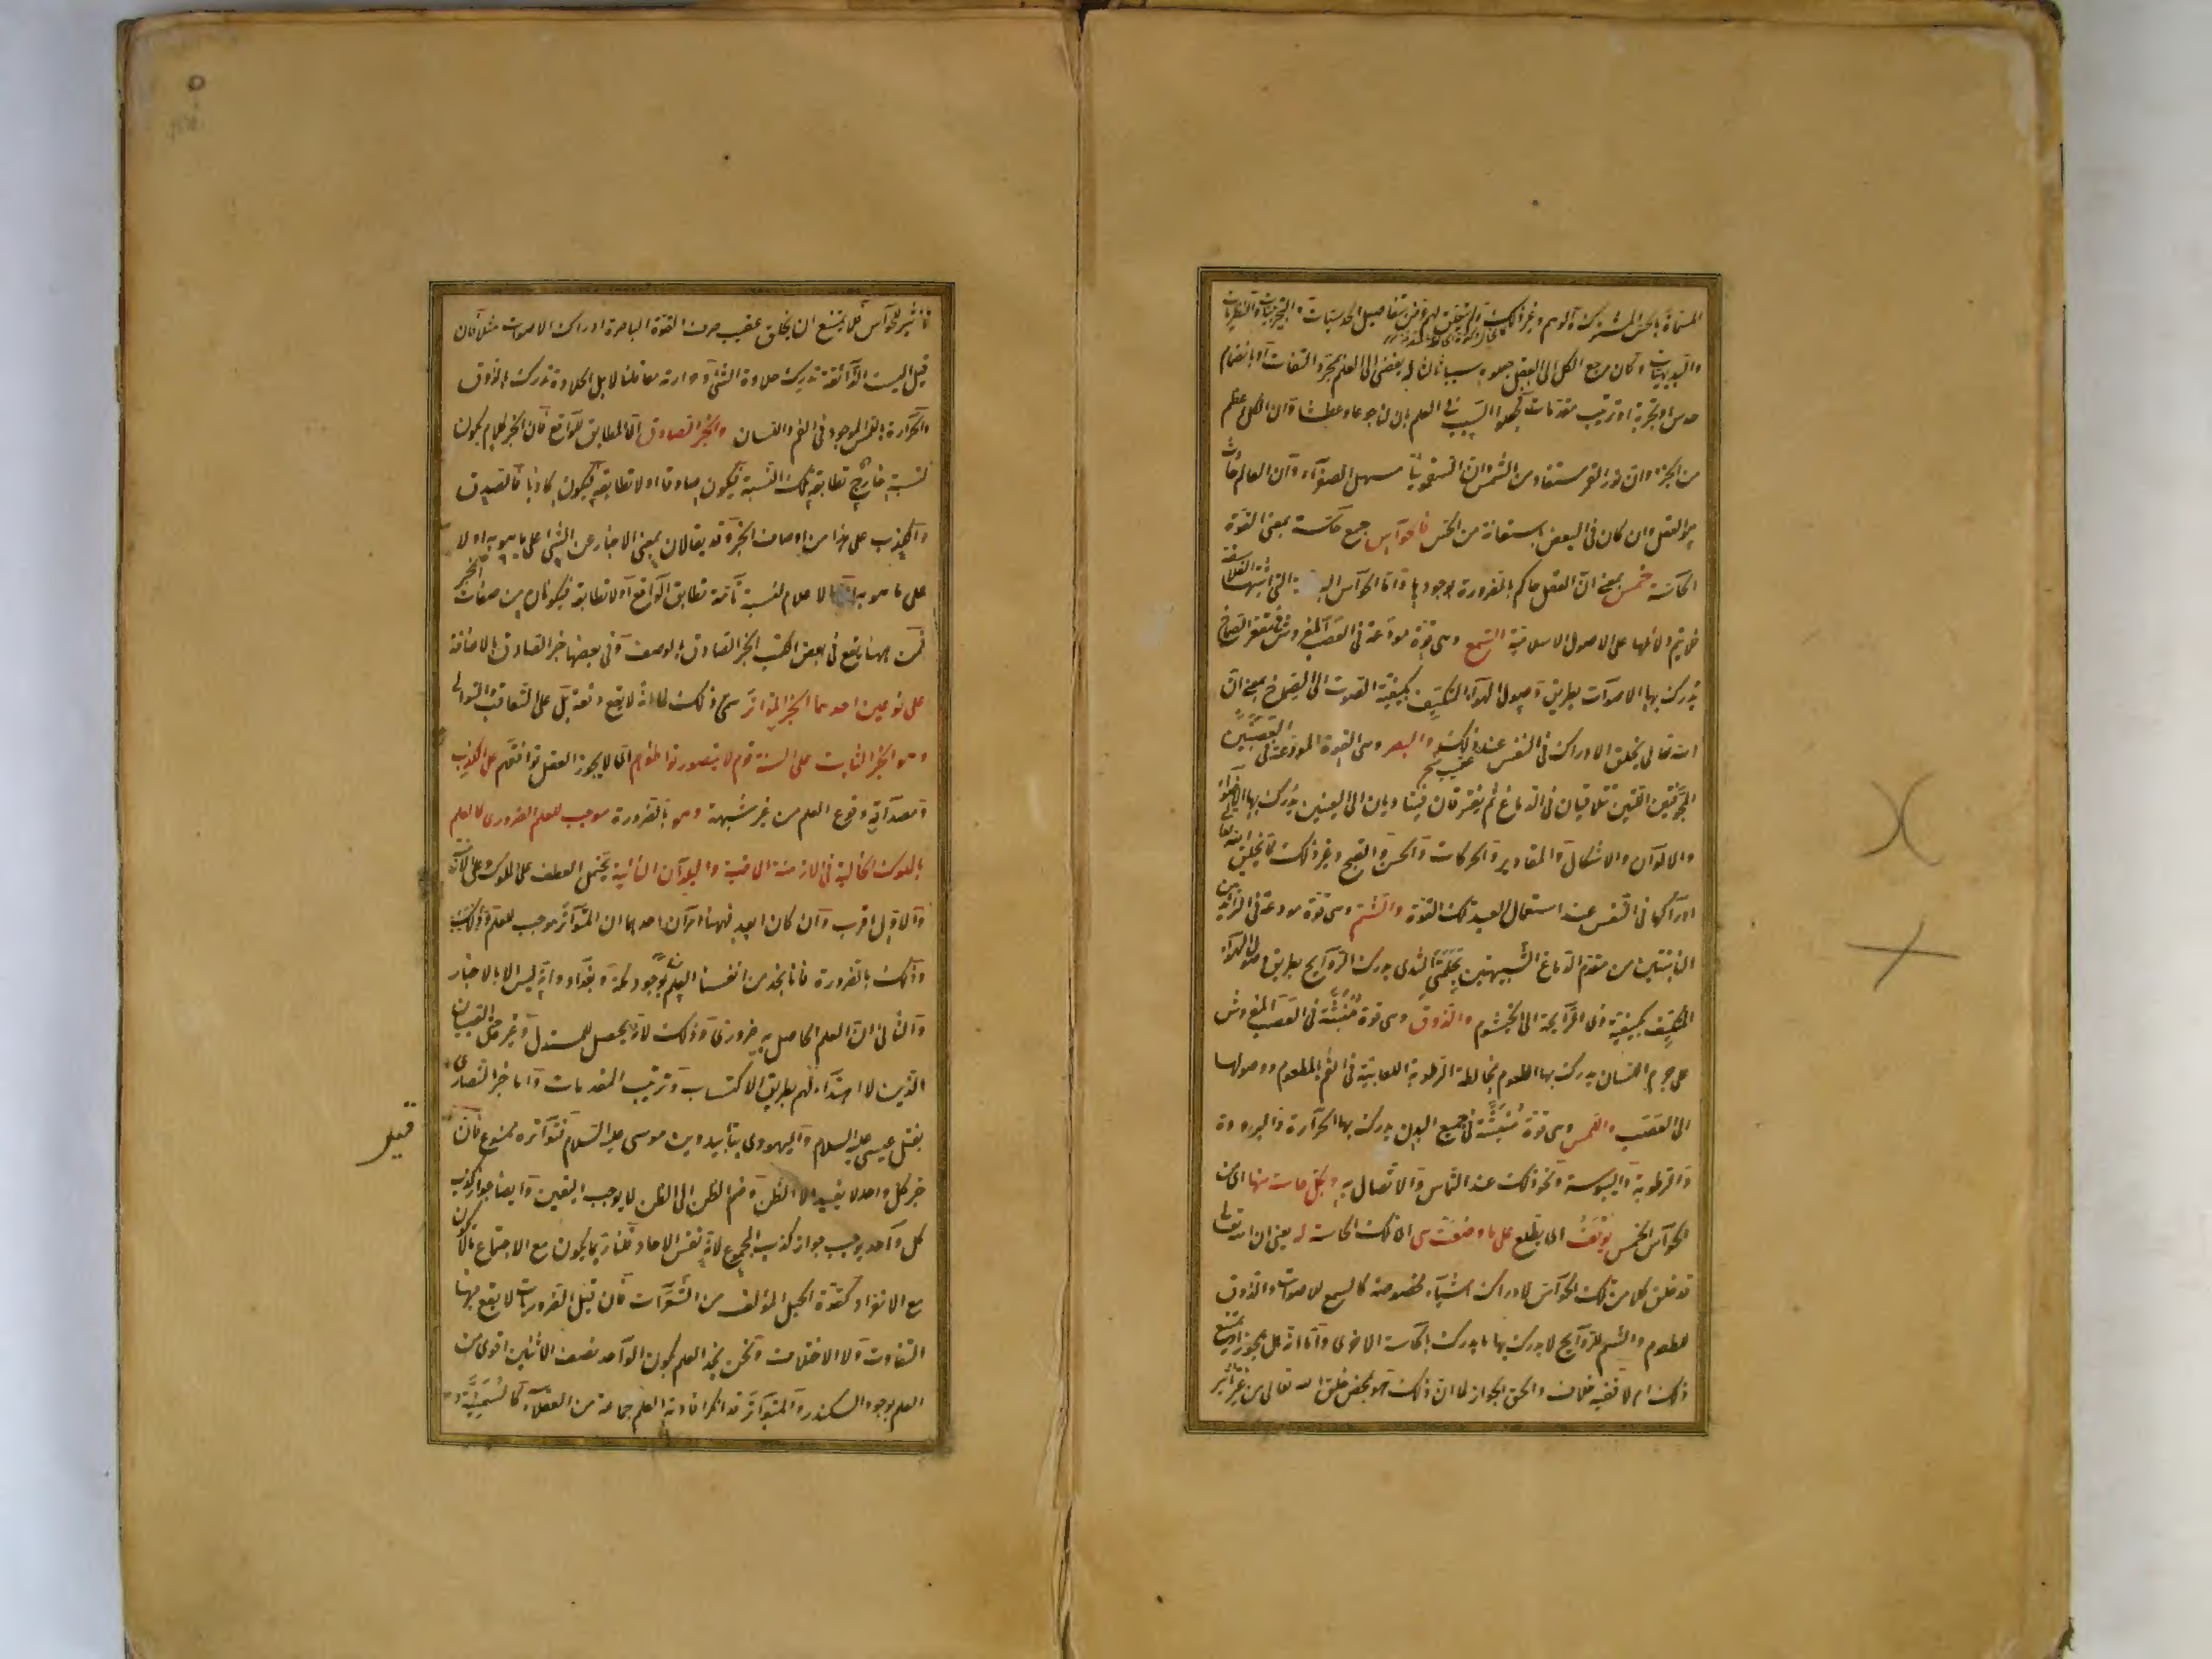 المسماة بالحس المشترك والوهم وغير ذلك ولم يتعلق لهم غرض بتفاصيل الحدسيات والتجربيات والنظريات
والبديهيات وكان مرجع الكل الى العقل جعلوه سببا ثالثا يفضى الى العلم بمجرد التفات او بانضمام
حدس او تجربة او ترتيب مقدمات فجعلوا السبب فى العلم بان لنا جوعا وعطشا وان الكل اعظم
من الجزء وان نور القمر مستفاد من الشمس وان السقمونيا مسهل للصفراء وان العالم حادث
هو العقل وان كان فى البعض باستعانة من الحس فالحواس جمع حاسة بمعنى القوة
الحاسة خمس بمعنى ان العقل حاكم بالضرورة بوجودها واما الحواس التى اثبتها الفلاسفة
فلا يتم دلائلها على الاصول الاسلامية السمع وهى قوة مودعة فى العصب المفروش فى مقعر الصماخ
يدرك بها الاصوات بطريق وصول الهواء المتكيف بكيفية الصوت الى الصماخ بمعنى ان
الله تعالى يخلق الادراك فى النفس عند ذلك والبصر وهى القوة المودعة فى العصبتين
المجوفتين اللتين تتلاقيان فى الدماغ ثم يفترقان فيتاديان الى العينين يدرك بها الاضواء
والالوان والاشكال والمقادير والحركات والحسن والقبح وغير ذلك مما يخلق الله تعالى
ادراكها فى النفس عند استعمال العبد تلك القوة والشم وهى قوة مودعة فى الزائدتين
النابتتين من مقدم الدماغ الشبيهتين بحلمتى الثدى يدرك الروايح بطريق وصول الهواء
المتكيف بكيفية ذى الرايحة الى الخيشوم والذوق وهى قوة منبثة فى العصب المفروش
على جرم اللسان يدرك بها الطعوم بمخالطة الرطوبة اللعابية فى الفم بالمطعوم ووصولها
الى العصب واللمس وهى قوة منبثة فى جميع البدن يدرك بها الحرارة والبرودة
والرطوبة واليبوسة ونحو ذلك عند التماس والاتصال به وبكل حاسة منها اى من
الحواس الخمس يوقف اى يطلع على ما وضعت هى اى تلك الحاسة له يعنى ان الله تعالى
قد خلق كلا من تلك الحواس لادراك اشياء مخصوصة كالسمع للاصوات والذوق
للطعوم والشم للروايح لا يدرك بها ما يدرك بالحاسة الاخرى واما انه هل يجوز او يمتنع
ذلك ام لا ففيه خلاف والحق الجواز لما ان ذلك هو بمحض خلق الله تعالى من غير تأثير
تاثير للحواس فلا يمتنع ان يخلق عقيب صرف القوة الباصرة ادراك الاصوات مثلا فان
قيل اليست الذائقة تدرك حلاوة الشئ وحرارته معا قلنا لا بل الحلاوة تدرك بالذوق
والحرارة باللمس الموجود فى الفم واللسان والخبر الصادق اى المطابق للواقع فان الخبر كلام يكون
لنسبته خارج تطابقه تلك النسبة فيكون صادقا او لا تطابقه فيكون كاذبا فالصدق
والكذب على هذا من اوصاف الخبر وقد يقالان بمعنى الاخبار عن الشئ على ما هو به او لا
على ما هو به الاعلام لنسبة تامة تطابق الواقع او لا تطابقه فيكونان من صفات المخبر
فمن ههنا يقع فى بعض الكتب الخبر الصادق بالوصف وفى بعضها خبر الصادق بالاضافة
على نوعين احدهما الخبر المتواتر سمى ذلك لما انه لا يقع دفعة بل على التعاقب والتوالى
وهو الخبر الثابت على السنة قوم لا يتصور تواطئهم اى لا يجوز العقل توافقهم على الكذب
ومصداقه وقوع العلم من غير شبهة وهو بالضرورة موجب للعلم الضرورى كالعلم
بالملوك الخالية فى الازمنة الماضية والبلدان النائية يحتمل العطف على الملوك وعلى الازمنة
والاول اقرب وان كان ابعد فههنا امران احدهما ان المتواتر موجب للعلم وذلك
وذلك بالضرورة فانا نجد من انفسنا العلم بوجود مكة وبغداد وانه ليس الا بالاخبار
والثانى ان العلم الحاصل به ضرورى وذلك لانه يحصل للمستدل وغيره حتى الصبيان
الذين لا اهتداء لهم بطريق الاكتساب وترتيب المقدمات واما خبر النصارى
بقتل عيسى عليه السلام واليهودى بتأبيد دين موسى عليه السلام فتواتره ممنوع فان
قيل
خبر كل واحد لا يفيد الا الظن وضم الظن الى الظن لا يوجب اليقين وايضا جواز كذب
كل واحد يوجب جواز كذب المجموع لانه نفس الاحاد قلنا ربما يكون مع الاجتماع ما لا يكون
مع الانفراد كقوة الحبل المؤلف من الشعرات فان قيل الضروريات لا يقع فيها
التفاوت ولا الاختلاف ونحن نجد العلم بكون الواحد نصف الاثنين اقوى من
العلم بوجود السكندر والمتواتر قد انكر افادته العلم جماعة من العقلاء كالسمنية